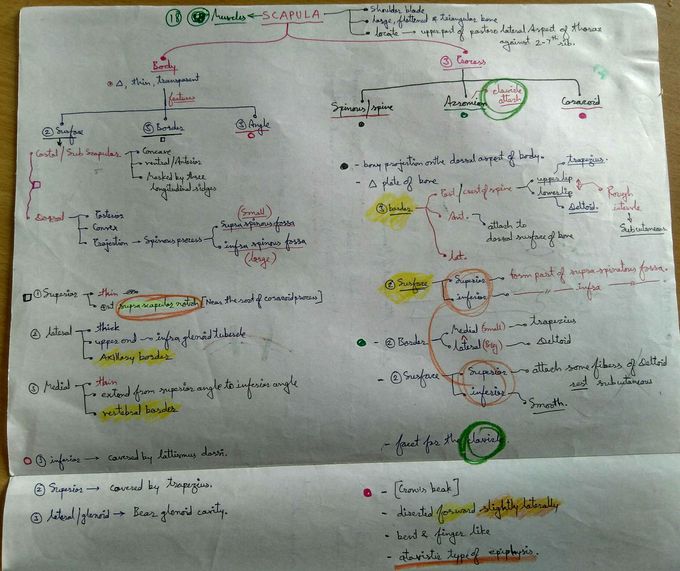 18 Muscles ← SCAPULA
shoulder blade
large, flattened & triangular bone
locate → upper part of postero lateral Aspect of thorax
against 2-7th rib.
Body
△, thin, transparent
features
② Surface
③ Border
③ Angle
③ Process
Spinous/spine
Acromion
clavicle attach
Coracoid
Costal/Sub Scapular
Concave
ventral/Anterior
Marked by three
longitudinal ridges
Dorsal
Posterior
Convex
Projection → Spinous process
(Small)
Supra spinous fossa
infra spinous fossa
(large)
① Superior
thin
supra scapular notch [Near the root of coracoid process]
② lateral
thick
upper end → infra glenoid tubercle
Axillary border
③ Medial
thin
extend from superior angle to inferior angle
vertebral border
① inferior → covered by lattissimus dorsi.
② Superior → covered by trapezius.
③ lateral/glenoid → Bear glenoid cavity.
- bony projection on the dorsal aspect of body.
- △ plate of bone
③ border
Post/crest of spine
upper lip
trapezius.
lower lip
Deltoid.
Rough
Subcutaneous
Ant.
attach to
dorsal surface of bone
lat.
② Surface
Superior → form part of supra-spinatous fossa.
inferior → —〃— infra —〃—
② Border
Medial (small) → trapezius
lateral (big) → Deltoid
② Surface
Superior → attach some fibers of Deltoid
rest subcutaneous
inferior → Smooth.
- facet for the clavicle
- [Crow's beak]
- directed forward slightly laterally
- bent & finger like
- atavistic type of epiphysis.